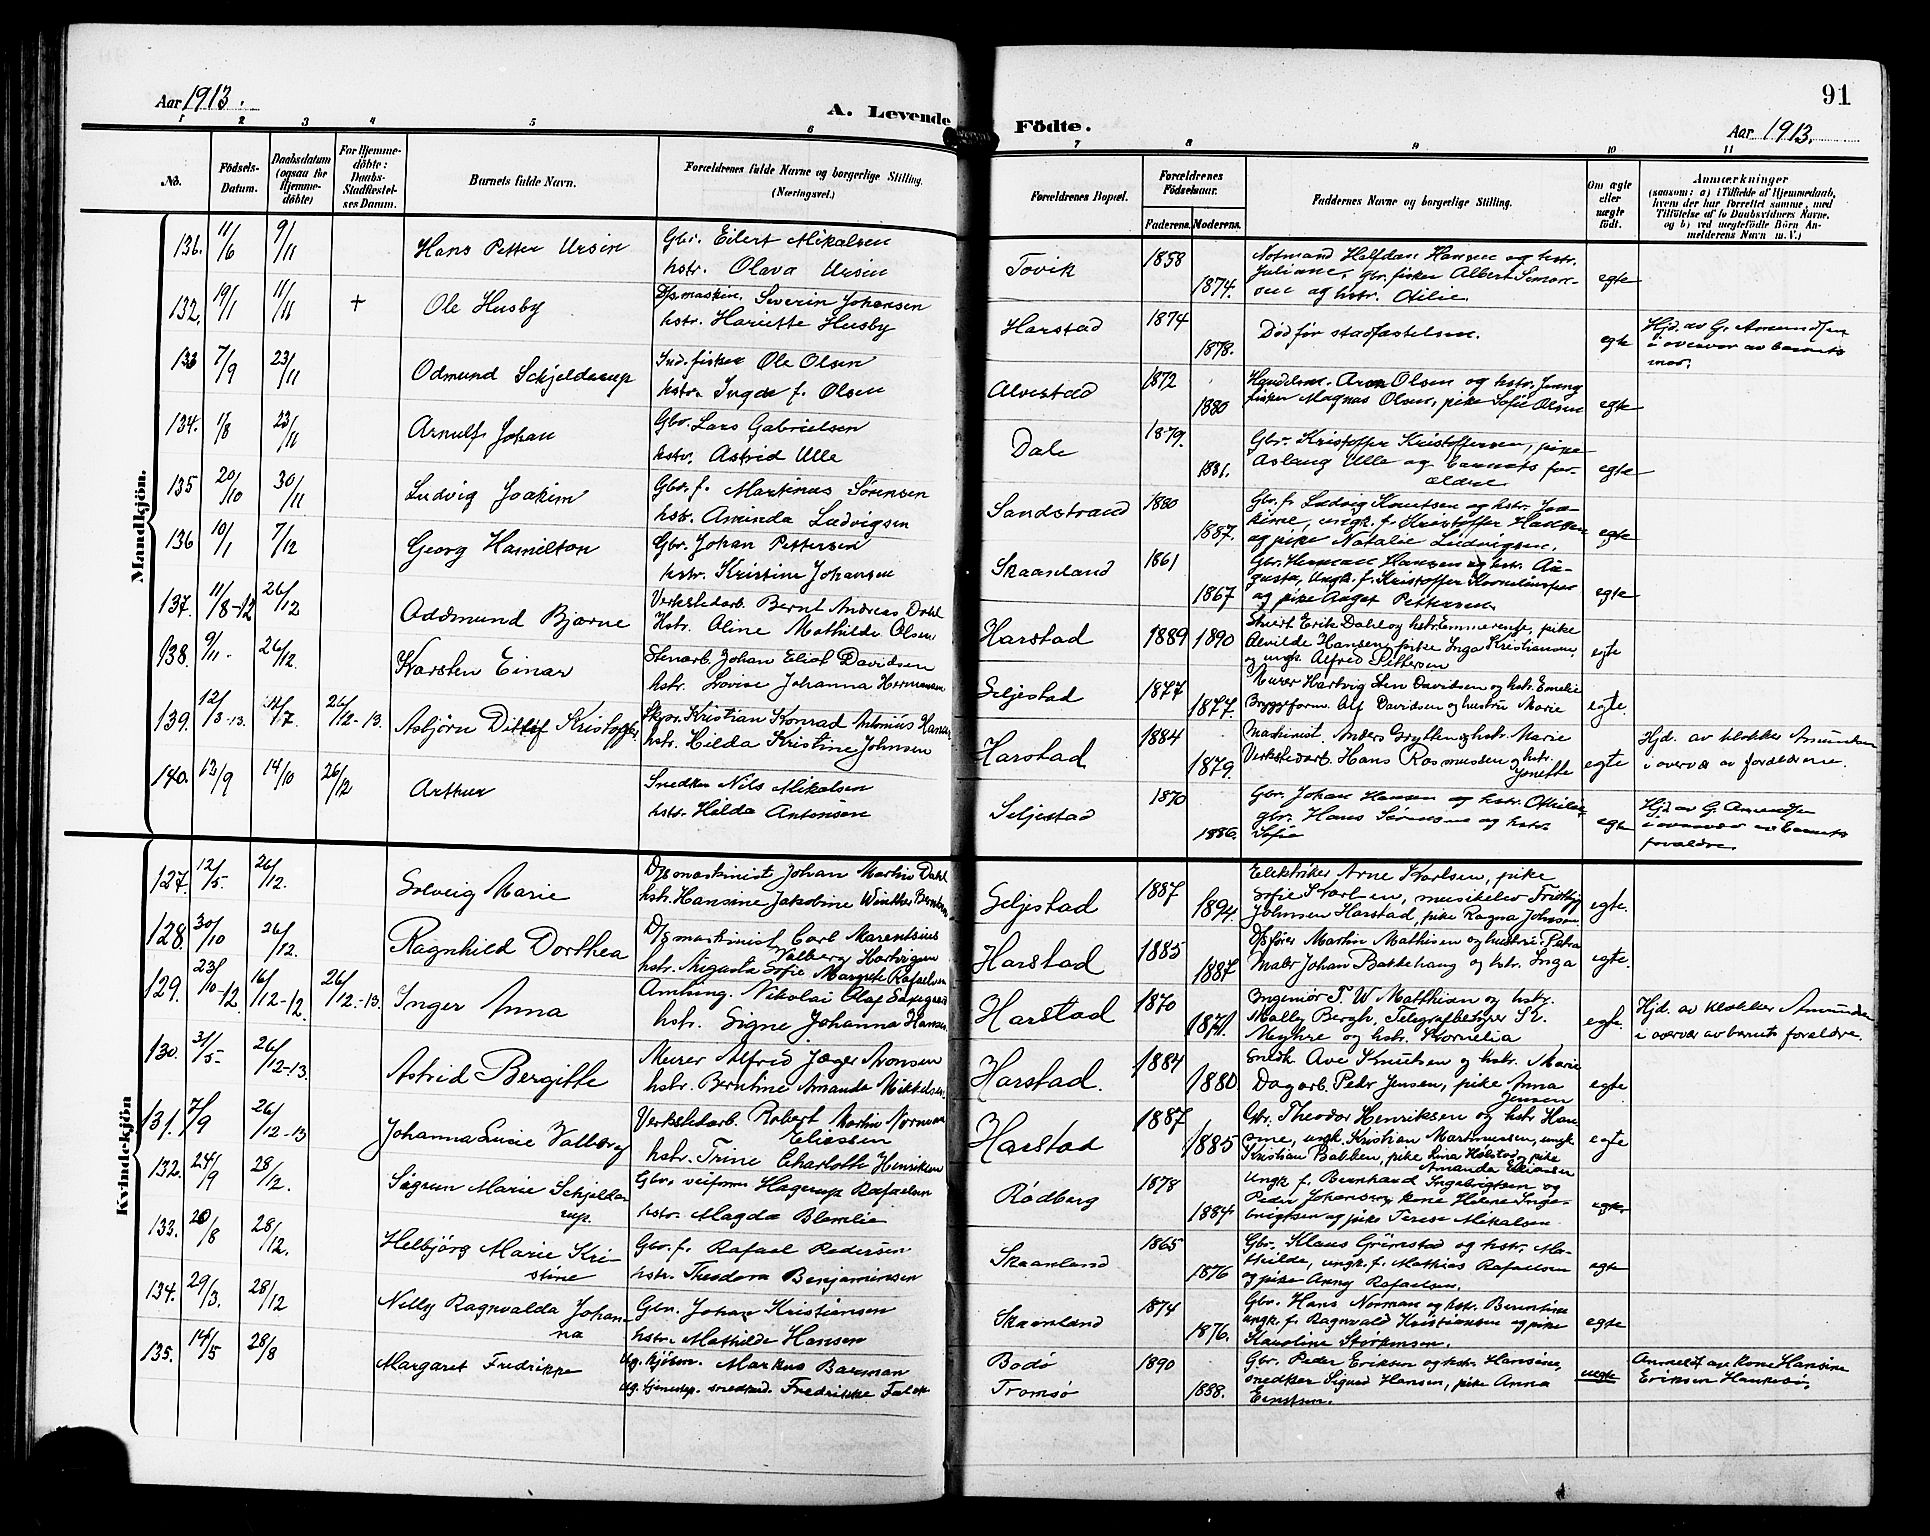 Aar 1913.
A. Levende
Födte.
91
Aar 1913.
1 2 3 4 5 6 7 8 9 10 11
No.
Födsels-
Datum.
Daabsdatum
(ogsaa for
Hjemme-
döbte)
For Hjemme-
döbte:
Daabs-
Stadfæstel-
ses Datum.
Barnets fulde Navn.
Forældrenes fulde Navne og borgerlige Stilling.
(Næringsvei.)
Forældrenes Bopæl.
Forældrenes
Födselsaar.
Faderens. Moderens.
Faddernes Navne og borgerlige Stilling.
Om ægte
eller
uægte
födt.
Anmærkninger
(saasom: a) i Tilfælde af Hjemmedaab,
hvem der har forrettet samme, med
Tilföielse af to Daabsvidners Navne,
og b) ved uægtefödte Börn An-
melderens Navn m. V.)
Mandkjön.
131. 11/6 9/11 Hans Petter Ursin
Gbr. Eilert Mikalsen
hstr. Olava Ursin
Tovik 1858 1874.
Notmand Halfdan Hansen og hstr.
Juliane, gbr. fisker Albert Simon-
sen og hstr. Otilie
egte
132. 19/1 11/11 + Ole Husby
D/s maskin. Severin Johansen
hstr. Hariette Husby
Harstad 1874 1878.
Död för stadfæstelsen.
egte
Hjd. av G. Amundsen
i overvær av barnets
mor.
133 7/9 23/11 Odmund Schjelderup
Ind. fisker Ole Olsen
hstr. Inga f. Olsen
Alvestad 1872 1880
Handelsm. Aron Olsen og hstr. Jenny
fisker Magnus Olsen, pike Sofie Olsen
egte
134. 11/8 23/11 Arnulf Johan
Gbr. Lars Gabrielsen
hstr. Astrid Ulle
Dale 1879. 1881.
Gbr. Kristoffer Kristoffersen, pike
Aslaug Ulle og barnets for-
ældre
egte
135 20/10 30/11 Ludvig Joakim
Gbr. f. Martinus Sörensen
hstr. Aminda Ludvigsen
Sandstrand 1880 1887.
Gbr. f. Ludvig Knutsen og hstr. Joa-
kime, ungk. f. Kristoffer Hansen
og pike Natalie Ludvigsen.
egte
136 10/1 7/12 Georg Hamilton
Gbr. Johan Pettersen
hstr. Kristine Johansen
Skaanland 1861 1867
Gbr. Herman Hansen og hstr. Au-
gusta, Ungk. f. Kristoffer Korneliussen
og pike Aagot Pettersen
egte
137. 11/8-12 26/12 Oddmund Bjarne
Verkstedarb. Bernt Andreas Dahl
Hstr. Oline Mathilde Olsen
Harstad 1889 1890
Stuert Erik Dahl og hstr. Emmerense, pike
Alvilde Hansen, pike Inga Kristiansen,
og ungk. Alfred Pettersen
egte
138. 9/11 26/12. Karsten Einar
Stenarb. Johan Eliot Davidsen
hstr. Lovise Johanna Hermansen
Seljestad 1877 1877.
Murer Hartvig Sten Davidsen og hstr. Emelie
Bryggeform. Alf Davidsen og hustru Marie
egte.
139. 12/3-13. 12/7 26/12-13. Asbjörn Ditlef Kristoffer
Skpr. Kristian Konrad Antonius Hansen
hstr. Hilda Kristine Johnsen
Harstad 1884 1879.
Maskinist. Anders Grytten og hstr. Marie
Verkstedarb. Hans Rasmussen og hstr.
Jonette
egte
Hjd. av klokker Amundsen
i overvær av forældrene.
140. 13/9 14/10 26/12 Arthur
Snedker Nils Mikalsen
hstr. Hilda Antonsen
Seljestad 1870 1886.
Gbr. Johan Hansen og hstr. Othilie,
gbr. Hans Sörensen og hstr.
Sofie
egte
Hjd av G. Amundsen
i overvær av barnets
forældre.
Kvindekjön
127. 12/5- 26/12. Solveig Marie
D/s maskinist Johan Martin Dahl
hstr. Hansine Jakobine Winther Berntsen
Seljestad 1887 1894.
Elektriker Arne Karlsen, pike
Sofie Karlsen, musikelev Fridthj.
Johnsen Harstad, pike Ragna Johnsen
egte.
128. 30/10 26/12. Ragnhild Dorthea
D/s maskinist Carl Marensius
Valberg Hartvigsen
hstr. Augusta Sofie Margrete Rafaelsen
Harstad 1885 1887
D/s förer Martin Mathisen og hustru Petra
Maler Johan Bakkehaug og hstr. Inga
egte.
129. 23/10-12. 16/12-12. 26/12-13. Inger Anna
Amting. Nikolai Olaf
hstr. Signe Johanna Hansen
Harstad 1870 1871.
Ingeniör T. W. Matthisen og hstr.
Molley Bergh, Telegrafbestyrer K.
Meyhre og hstr. Kornelia
egte.
Hjd. av klokker Amundsen
i overvær av barnets forældre.
130. 31/5- 26/12-13. Astrid Bergitte
Murer Alfred Jæger Aronsen
hstr. Berntine Amanda Mikkelsen
Harstad. 1884 1880.
Snedk. Ave Knutsen og hstr. Marie
Dagarb. Peder Jensen, pike Anna
Jensen
egte
131. 7/9 26/12-13 Johanna Lucie Valborg
Verkstedarb. Robert Martin Norman
Eliassen
hstr. Trine Charlotte Henriksen
Harstad 1887 1885
Gbr. Theodor Henriksen og hstr. Han-
sine, ungk. Kristian Martinussen, ungk
Kristian Bakken, pike Lina Holstad, pike
Amanda Eliassen
egte
132. 24/9 28/12. Sigrun Marie Schjelde-
rup.
Gbr. veiform. Hagerup Rafaelsen
hstr. Magda Blemlie
Rödberg 1878 1884.
Ungk. f. Bernhard Ingebrigtsen og
Peder Johansen, kone Helene Inge-
brigtsen og pike Terese Mikalsen
egte
133. 20/8 28/12. Helbjörg Marie Kri-
stine
Gbr. f. Rafael Pedersen
hstr. Theodora Benjaminsen
Skaanland 1865 1876
Gbr. Klaus Grimstad og hstr. Ma-
thilde, ungk. f. Mathias Rafaelsen
og pike Anny Rafaelsen.
egte
134. 29/3. 28/12 Nelly Ragnvalda Johan-
na
Gbr. Johan Kristiansen
hstr. Mathilde Hansen
Skaanland 1874 1876.
Gbr. Hans Norman og hstr. Berentine
ungk. f. Ragnvald Kristiansen og pike
Karoline Störkersen.
egte
135. 14/5 28/8 Margaret Fredrikke
Ug. Markus Barman
Ug. tjenestep. Fredrikke Falck
Bodö
Tromsö
1890 1888.
Gbr. Peder Eriksen og hstr. Hansine,
snedker Sigurd Hansen, pike Anna
Erntsen.
uegte
Anmeldt av kone Hansine
Eriksen Haukebö.